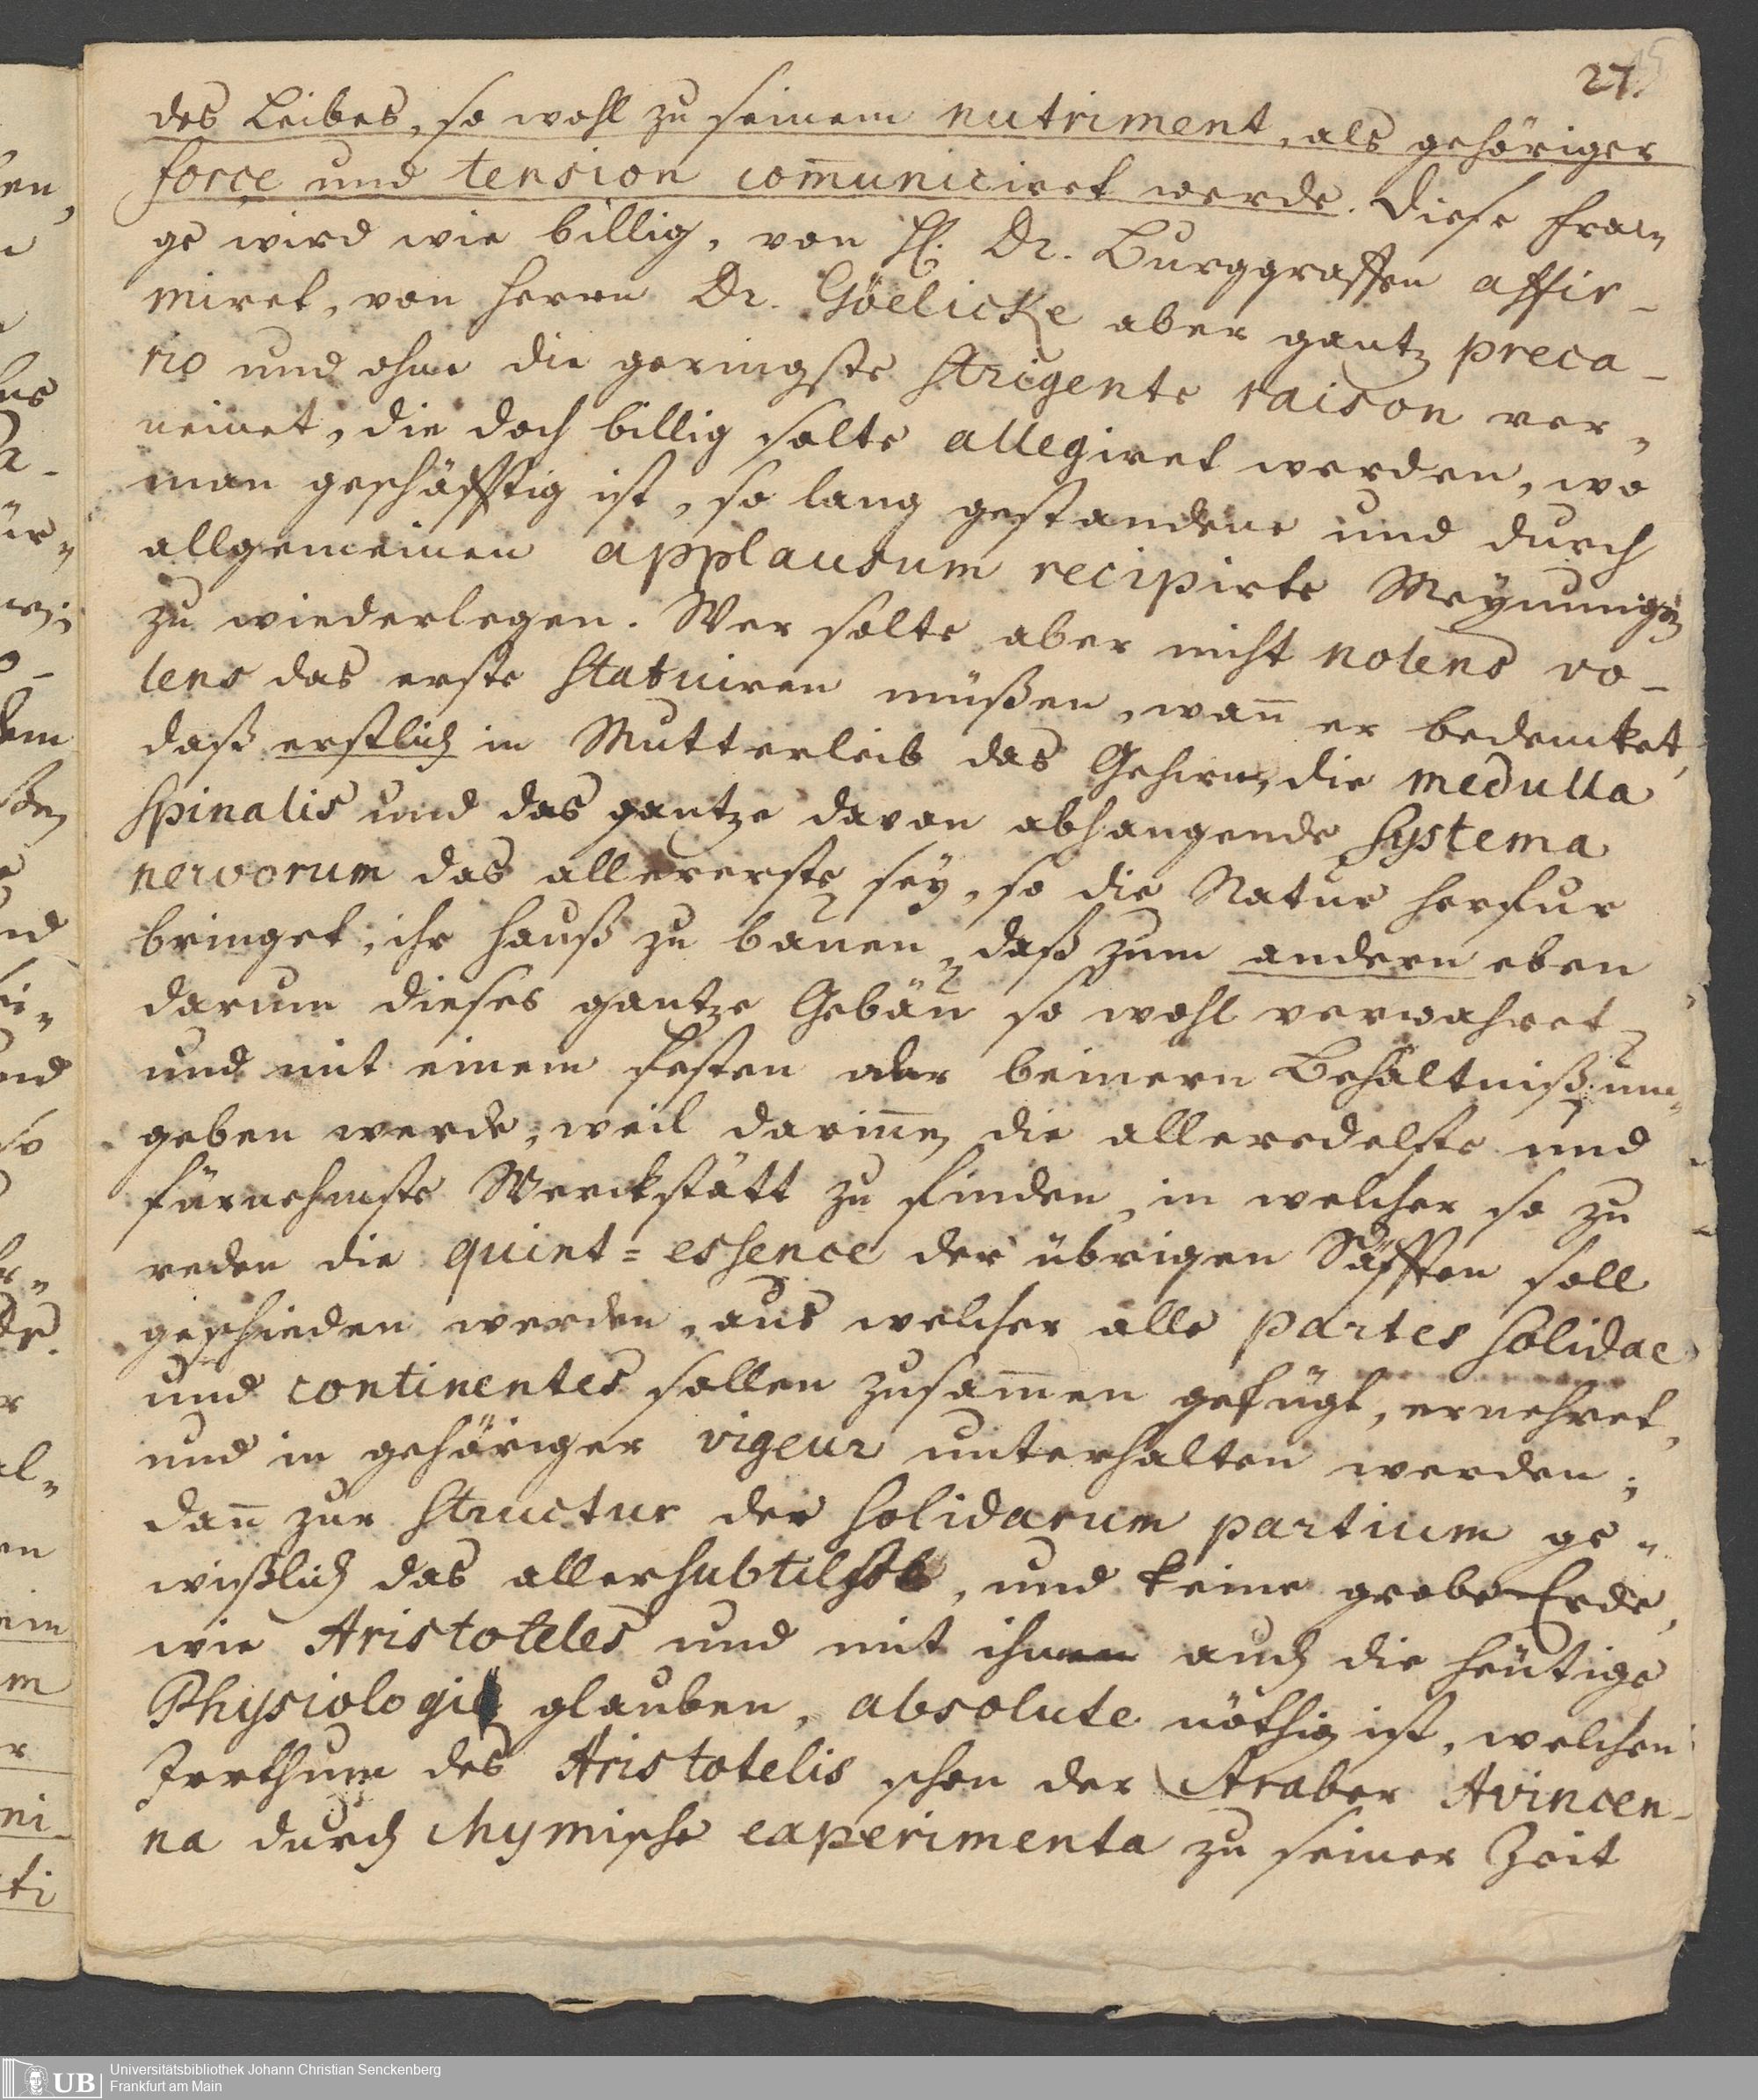 27.
des Leibes, so wohl zu seinem nutriment, als gehöriger
force und tension com̄uniciret werde. Diese Fra-
ge wird wie billig, von H. Dr. Burggraffen affir-
miret, von Herrn Dr. Göelicke aber gantz preca-
rio und ohne die geringste stringente raison ver-
neinet, die doch billig solte allegiret werden, wo
man geschäfftig ist, so lang gestandene und durch
allgemeinen applausum recipirte Meynungen
zu wiederlegen. Wer solte aber nicht nolens vo-
lens das erste statuiren müßen, wan̄ er bedencket,
daß erstlich in Mutterleib das Gehirn, die medulla
spinalis und das gantze davon abhangende Systema
nervorum das allererste sey, so die Natur herfur
bringet, ihr Hauß zu bauen, daß zum andern eben
darum dieses gantze Gebäu so wohl verwahret,
und mit einem festen oder beinern Behältniß um-
geben werde, weil darin̄en die alleredelste und
fürnehmste Werckstätt zu finden, in welcher so zu
reden die quint=essence der übrigen Säfften soll
geschieden werden, aus welcher alle partes solidae
und continentes sollen zusam̄en gefügt, ernehret,
und in gehöriger vigeur unterhalten werden;
dan̄ zur Structur der solidarum partium ge-
wißlich das allersubtilste, und keine grobe Erde,
wie Aristoteles und mit ihm auch die heutige
Physiologi glauben, absolute nöthig ist, welchen
Irrthum des Aristotelis schon der Araber Avincen-
na durch chymische experimenta zu seiner Zeit
UB
Universitätsbibliothek Johann Christian Senckenberg
Frankfurt am Main